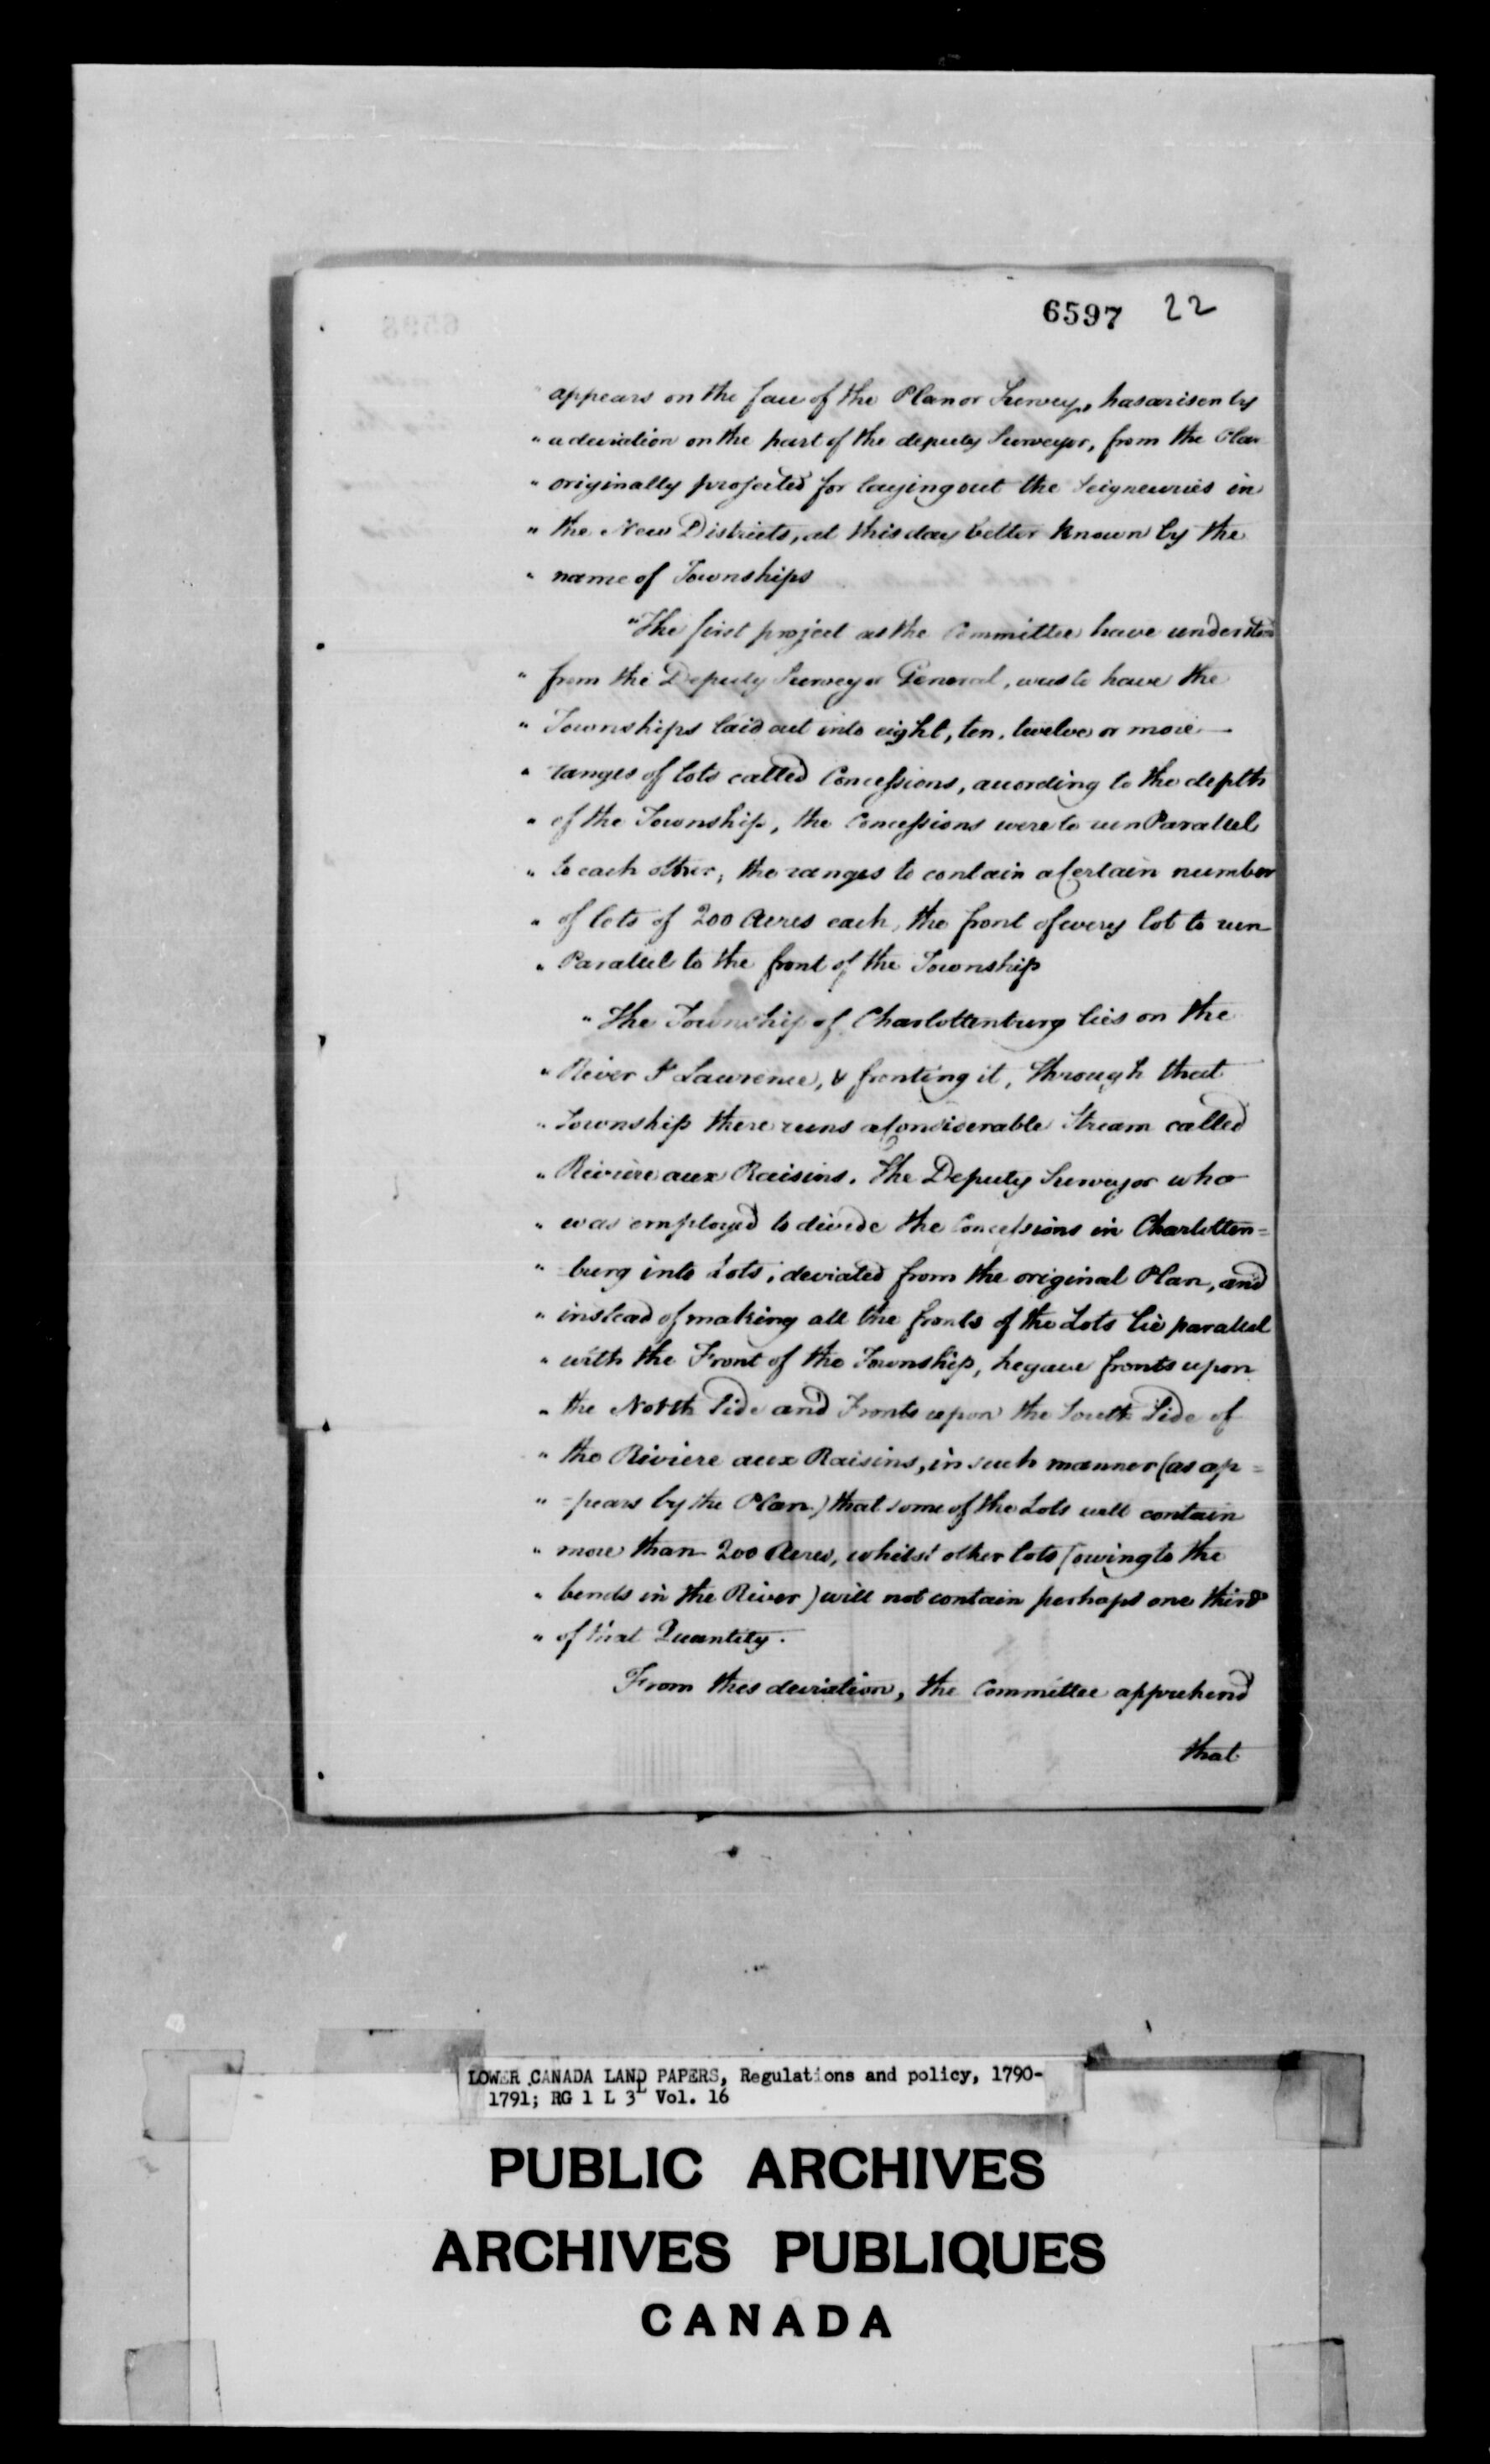 6597 22
" appears on the face of the Plan or Survey, has arisen by
" a deviation on the part of the deputy Surveyor, from the Plan
" originally projected for laying out the Seigneuries in
" the New Districts, at this day better known by the
" name of Townships
"The first project as the Committee have understood
" from the Deputy Surveyor General, was to have the
" Townships laid out into eight, ten, twelve or more —
" ranges of lots called Concessions, according to the depth
" of the Township, the Concessions were to run Parallel
" to each other; the ranges to contain a Certain number
" of lots of 200 Acres each, the front of every lot to run
" Parallel to the front of the Township
" The Township of Charlottenburg lies on the
" River St Lawrence, & fronting it, through that
" Township there runs a Considerable Stream called
" Riviere aux Raisins. The Deputy Surveyor who
" was employed to divide the Concessions in Charlotten=
" =burg into Lots, deviated from the original Plan, and
" instead of making all the fronts of the Lots lie parallel
" with the Front of the Township, he gave fronts upon
" the North Side and Fronts upon the South Side of
" the Riviere aux Raisins, in such manner (as ap=
" =pears by the Plan) that some of the Lots will contain
" more than 200 Acres, whilst other lots (owing to the
" bends in the River) will not contain perhaps one third
" of that Quantity.
From this deviation, the Committee apprehend
that
LOWER CANADA LAND PAPERS, Regulations and policy, 1790-
1791; RG 1 L 3L Vol. 16
PUBLIC ARCHIVES
ARCHIVES PUBLIQUES
CANADA